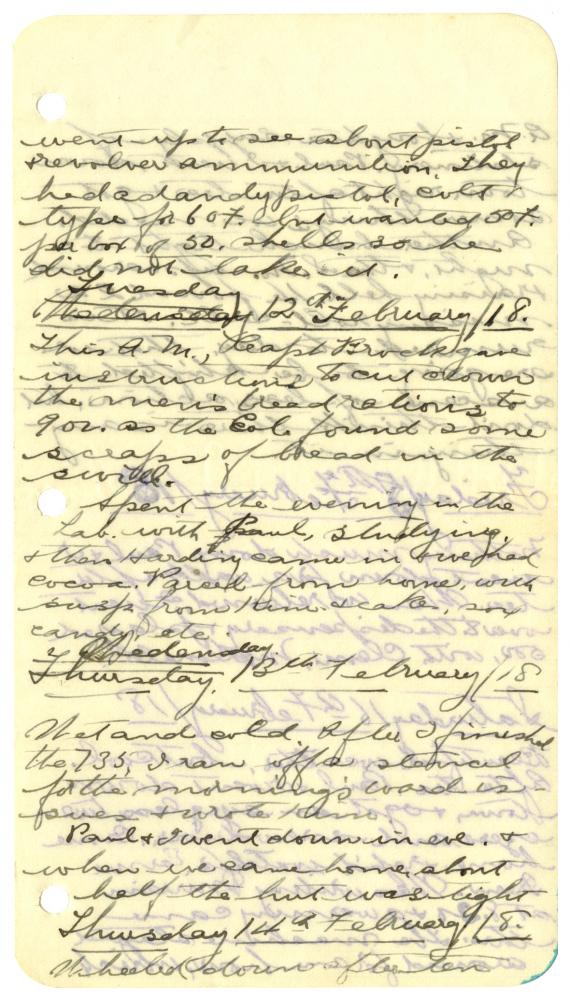 went up to see about pistol
& revolver ammunition. They
had a dandy pistol, colt
type for 60 f. but wanted 50 f.
per box of 50. shells so he
did not take it.
Tuesday
Wedensday 12th February/18.
This A.M., Capt Brock gave
instructions to cut down
the men's bread rations to
9 oz. as the Col. found some
scraps of bread in the
swill.
Spent the evening in the
Lab. with Paul, studying,
& then Harding came in & we had
cocoa. Parcel from home, with
susp from Kim & cake, sox
candy, etc.
Wedensday
Thursday, 13th February/18
Wet and cold. After I finished
the 735, I ran off a stencil
for the morning's ward is-
sues & wrote Kim.
Paul & I went down in eve. &
when we came home, about
half the hut was tight
Thursday 14th February/18.
Wheeled down after ten